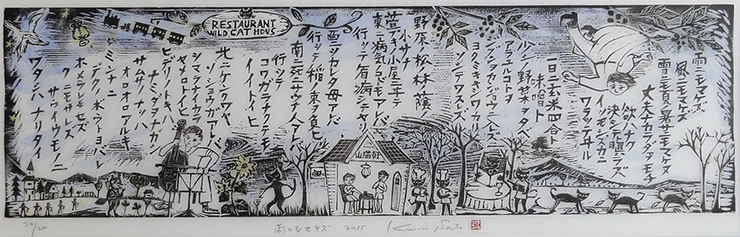 RESTAURANT
WILD CAT HOUS
雨ニモマケズ
風ニモマケズ
雪ニモ夏ノ暑サニモマケヌ
丈夫ナカラダヲモチ
欲ハナク
決シテ瞋ラズ
イツモシヅカニ
ワラッテヰル
一日ニ玄米四合ト
味噌ト
少シノ野菜ヲタベ
アラユルコトヲ
ジブンヲカンジョウニ入レズニ
ヨクミキキシワカリ
ソシテワスレズ
野原ノ松ノ林ノ蔭ノ
小サナ
萱ブキノ小屋ニヰテ
東ニ病気ノコドモアレバ
行ッテ看病シテヤリ
西ニツカレタ母アレバ
行ッテソノ稲ノ束ヲ負ヒ
南ニ死ニサウナ人アレバ
行ッテ
コワガラナクテモ
イイトイヒ
北ニケンクヮヤ
ソショウガアレバ
ツマラナイカラ
ヤメロトイヒ
ヒデリノトキハ
ナミダヲナガシ
サムサノナツハ
オロオロアルキ
ミンナニ
デクノボウトヨバレ
ホメラレモセズ
クニモサレズ
サウイウモノニ
ワタシハナリタイ
山猫軒
雨ニモマケズ 2015